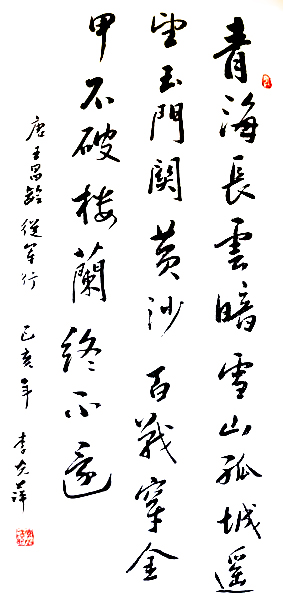 青海長雲暗雪山孤城遥
望玉門關黄沙百戰穿金
甲不破楼蘭終不還
唐王昌齡從軍行 己亥年 李萍